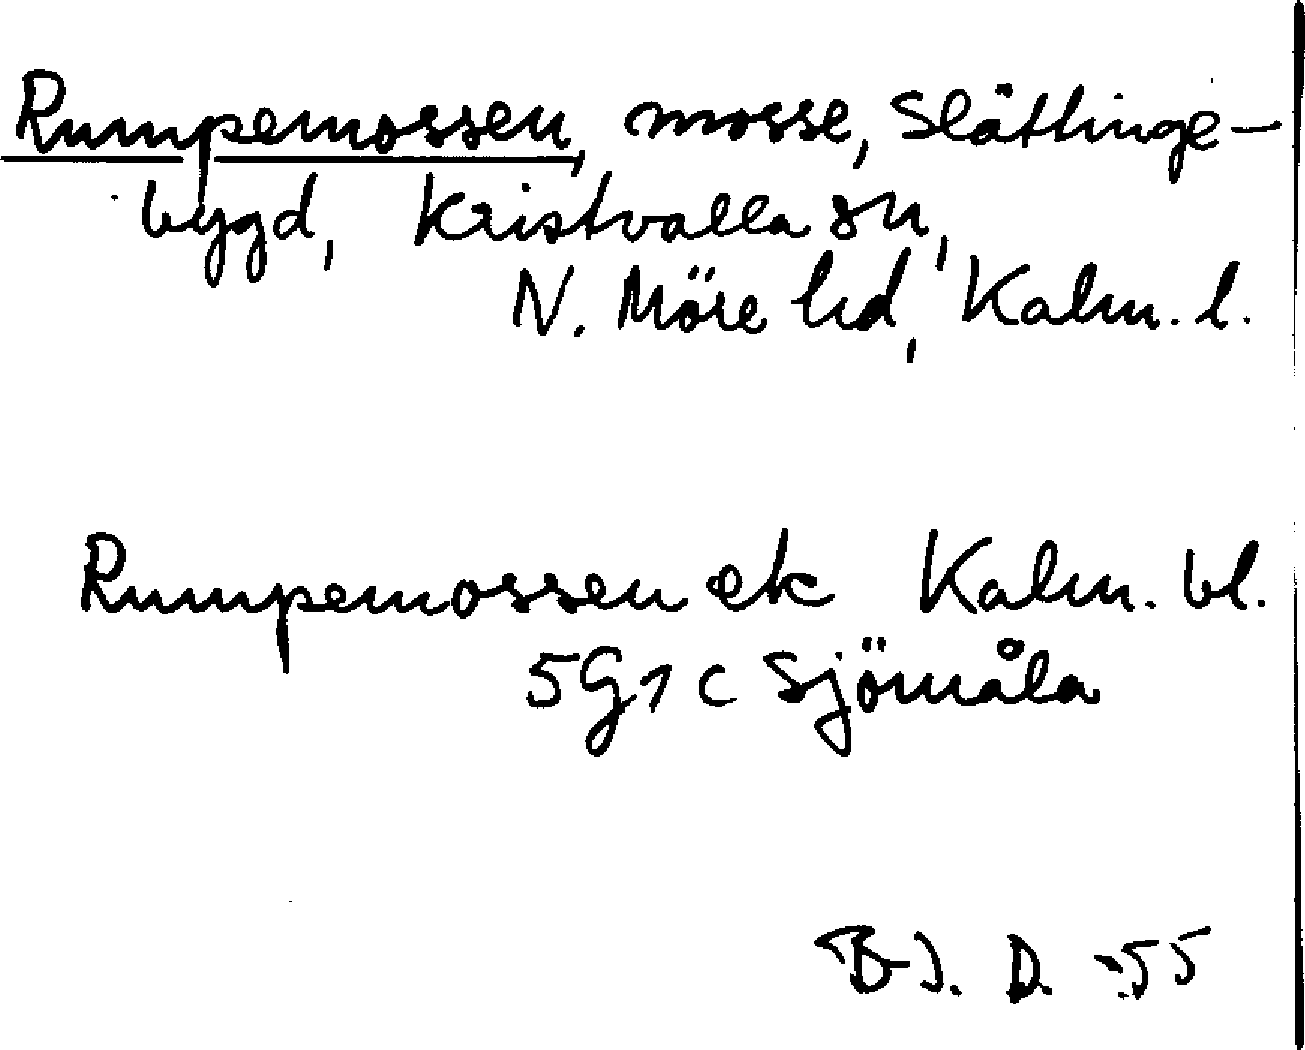 Rumpemossen, mosse, Slättinge-
bygd, Kristvalla sn,
N. Möre hd, Kalm. l.
Rumpemossen ek Kalm. bl.
5G1c Sjömåla
B. J. D. -55